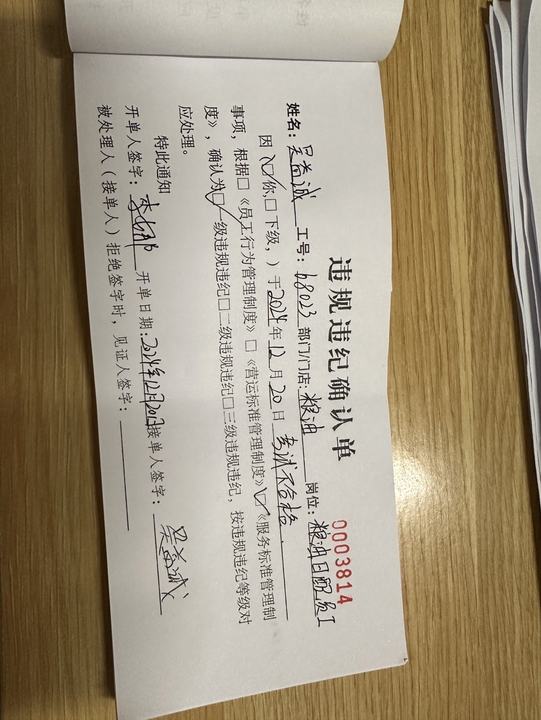 违规违纪确认单
0003814
姓名：吴益诚 工号：68023 部门/门店：粮油 岗位：粮油日配员工
因（☑你，□下级，）于2024年12月20日 考试不合格
事项，根据□《员工行为管理制度》□《营运标准管理制度》☑《服务标准管理制
度》，确认为☑一级违规违纪□二级违规违纪□三级违规违纪，按违规违纪等级对
应处理。
特此通知
开单人签字：李 开单日期：2024年12月20日接单人签字：吴益诚
被处理人（接单人）拒绝签字时，见证人签字：